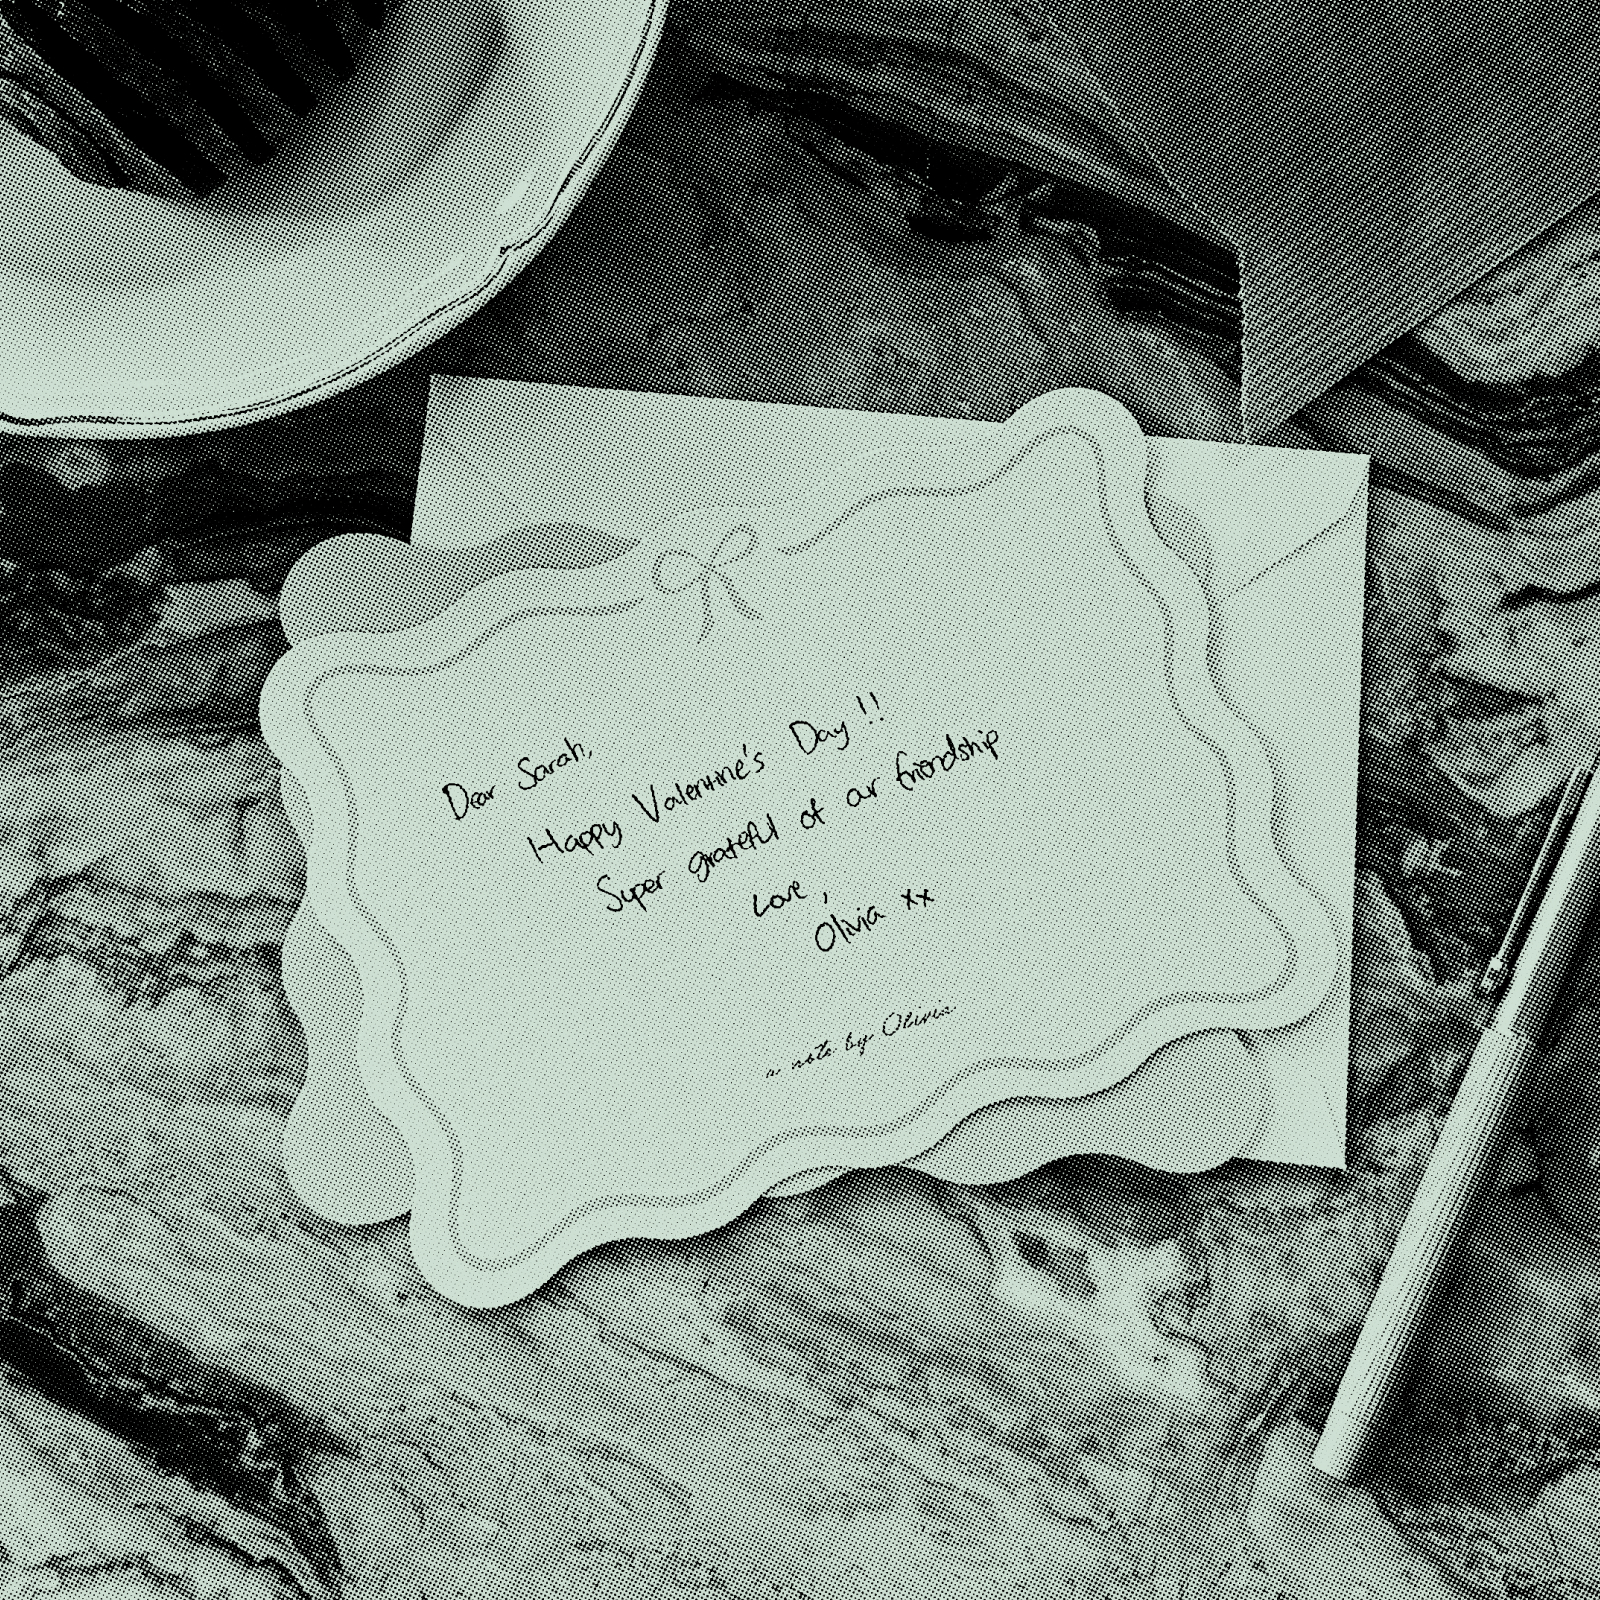 Dear Sarah,
Happy Valentine's Day!!
Super grateful of our friendship
Love,
Olivia xx
a note by Olivia